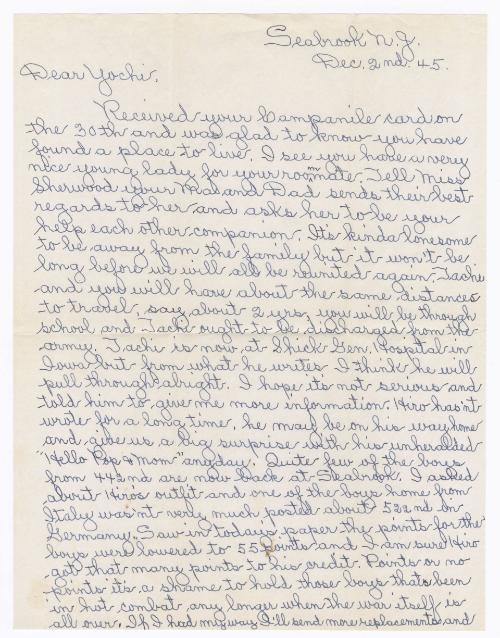 Seabrook N.J.
Dec. 2nd. 45.
Dear Yochi,
Received your Campanile card on
the 30th and was glad to know you have
found a place to live. I see you have a very
nice young lady for your roommate. Tell Miss
Sherwood your Ma and Dad sends their best
regards to her and asks her to be your
help each other companion. It's kinda lonesome
to be away from the family but it won't be
long before we will all be reunited again. Tachi
and you will have about the same distances
to travel, say about 2 yrs, you will be through
school and Tachi ought to be discharged from the
army. Tachi is now at Shick Gen. Hospital in
Iowa but from what he writes I think he will
pull through alright. I hope its not serious and
told him to give me more information. Hiro hasn't
wrote for a long time, he may be on his way home
and give us a big surprise with his unheralded
"Hello Pop & Mom" anyday. Quite few of the boys
from 442nd are now back at Seabrook. I asked
about Hiros outfit and one of the boys home from
Italy wasn't very much posted about 522nd in
Germany. Saw in today's paper the points for the
boys were lowered to 55 points and I am sure Hiro
got that many points to his credit. Points or no
points it's a shame to hold those boys thats been
in hot combat any longer when the war itself is
all over. If I had my way I'll send more replacements and